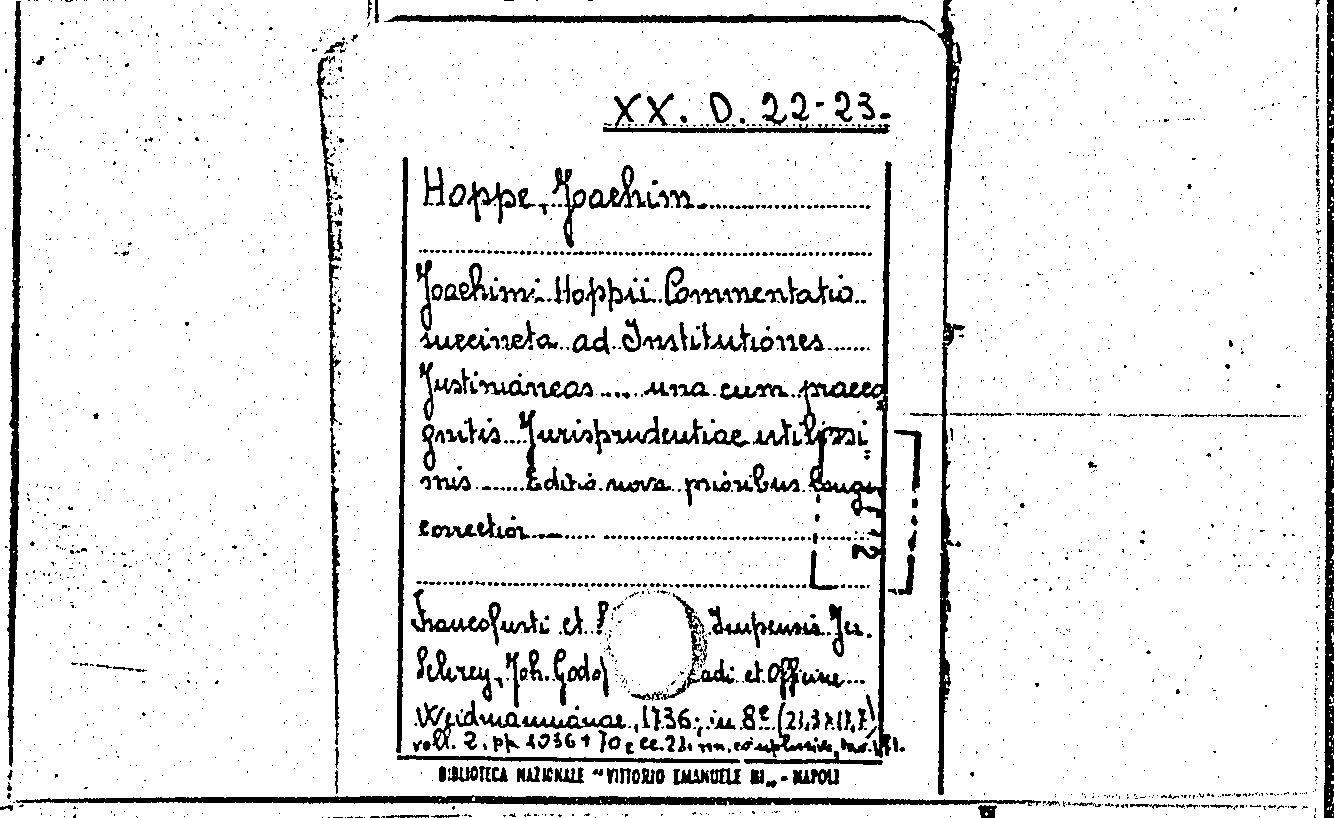 XX. D. 22-23.
Hoppe, Joachim
Joachimi Hoppii Commentatio
succincta ad Institutiones
Justinianeas .... una cum praeco
gnitis Jurisprudentiae utilissi
mis ...... Editio nova prioribus longe
correctior
Francofurti et Impensis Jer.
Schrey, Joh. adi et Officine
Weidmannianae, 1736; in 8º
voll. 2. pp. 1036+70 cc. 21. nn.
BIBLIOTECA NAZIONALE "VITTORIO EMANUELE III" - NAPOLI